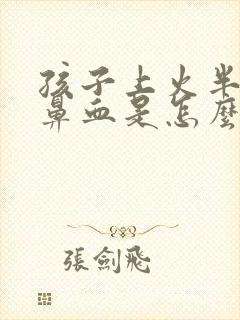 孩子上火半
鼻血是怎麼
張劍飛